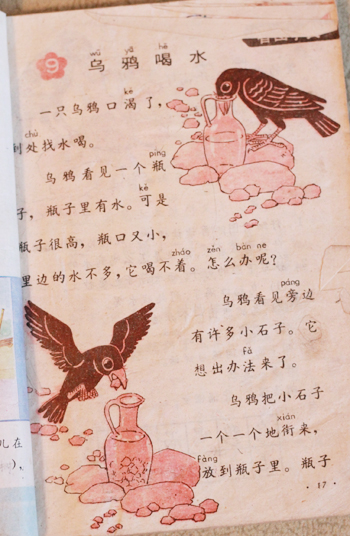 9 乌鸦喝水
wū yā hē
一只乌鸦口渴了，
kě
到处找水喝。
chù
乌鸦看见一个瓶
píng
子，瓶子里有水。可是
kě
瓶子很高，瓶口又小，
里边的水不多，它喝不着。怎么办呢？
zháo zěn bàn ne
乌鸦看见旁边
páng
有许多小石子。它
想出办法来了。
fǎ
乌鸦把小石子
一个一个地衔来，
xián
放到瓶子里。瓶子
fàng
·17·
儿在